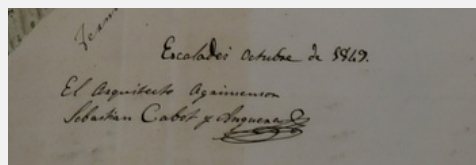 Escaladei Octubre de 1849.
El Arquitecto Agrimensor
Sebastian Cabet y